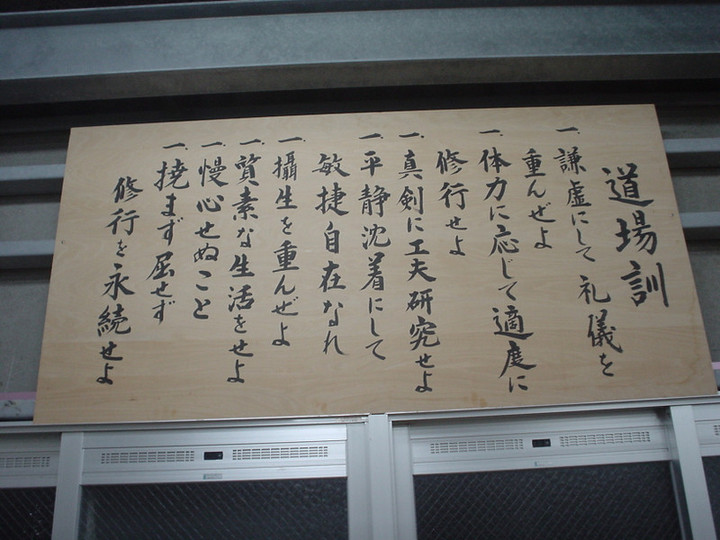 道場訓
一、謙虚にして礼儀を
重んぜよ
一、体力に応じて適度に
修行せよ
一、真剣に工夫研究せよ
一、平静沈着にして
敏捷自在なれ
一、攝生を重んぜよ
一、質素な生活をせよ
一、慢心せぬこと
一、撓まず屈せず
修行を永続せよ